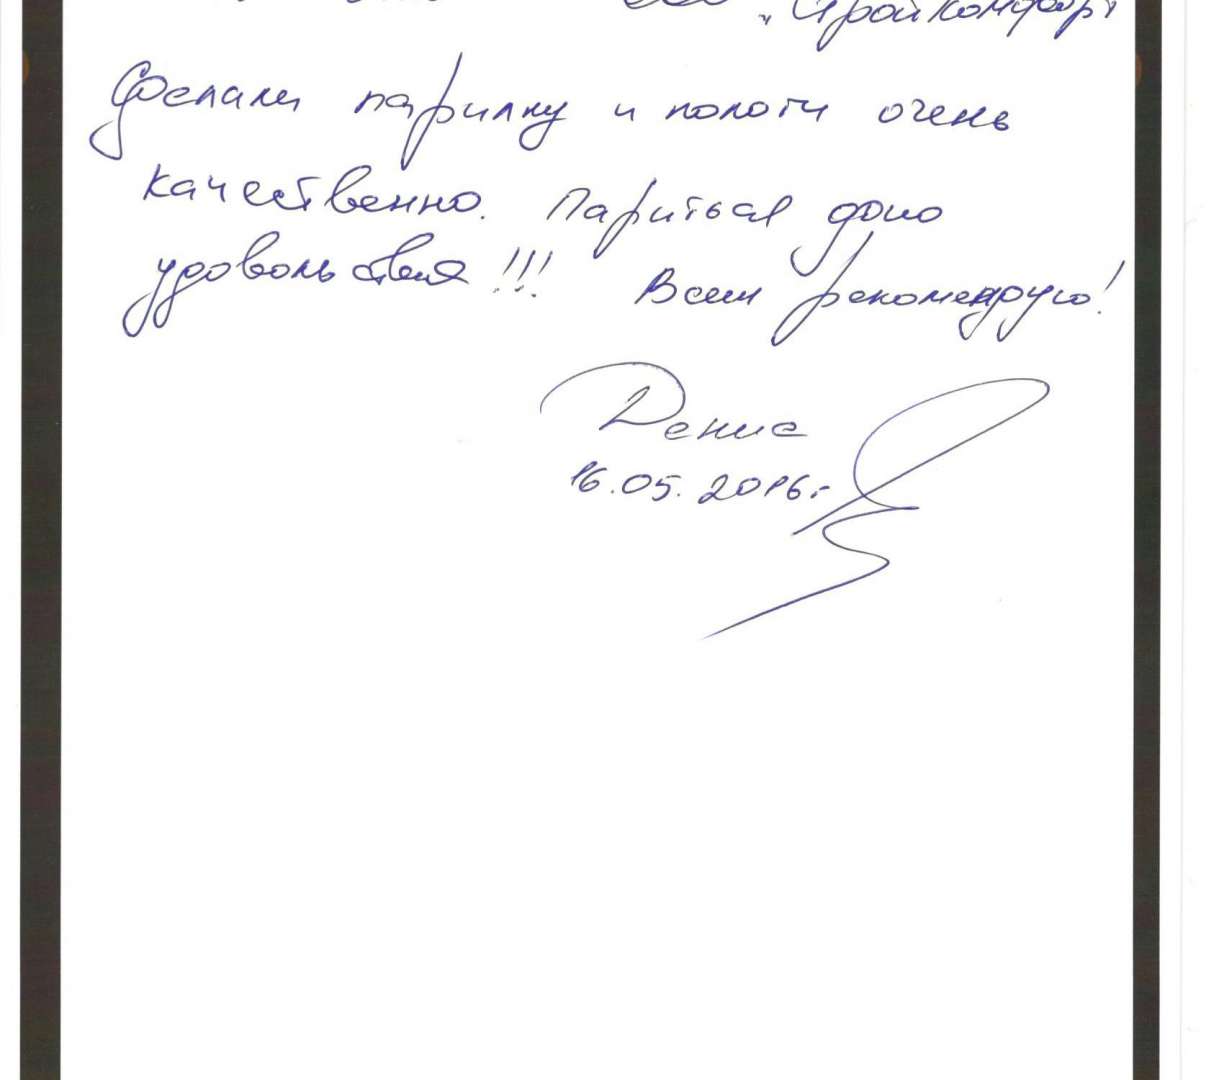 "СтройКомфорт
Сделали парилку и пологи очень
качественно. Париться одно
удовольствия!!! Всем рекомендую!
Денис
16.05.2016г.